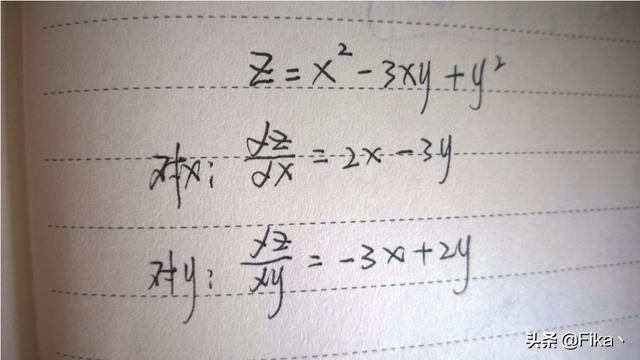 z = x² - 3xy + y²
对x: dz/dx = 2x - 3y
对y: dz/dy = -3x + 2y
头条 @Fika丶